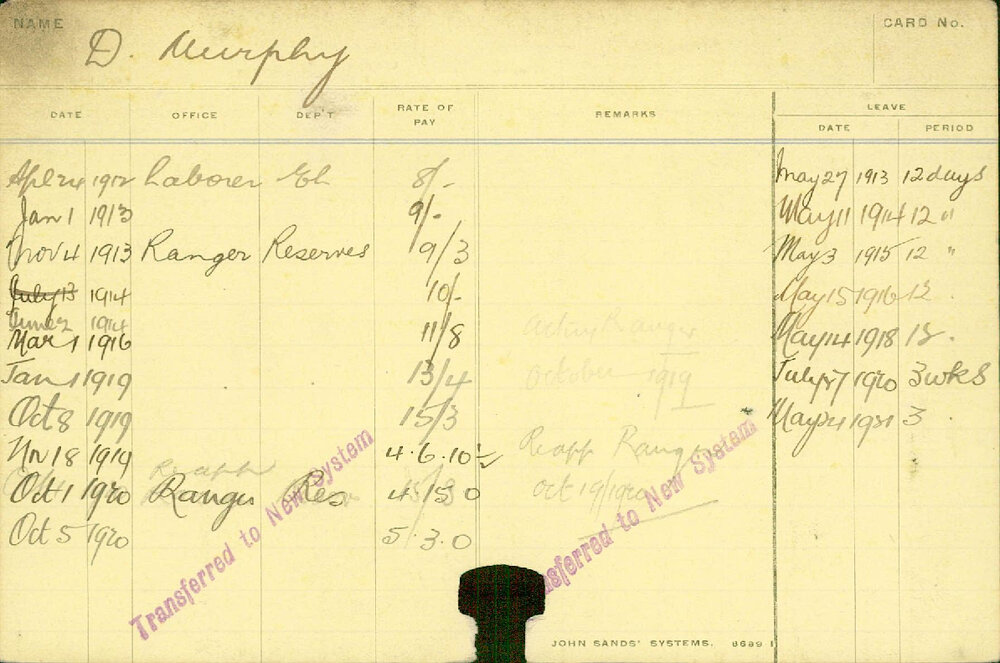 NAME D. Murphy CARD No.
DATE OFFICE DEP'T RATE OF PAY REMARKS LEAVE
DATE PERIOD
Apl 24 1912 Laborer 8/- May 27 1913 12 days
Jan 1 1913 9/- May 11 1914 12 "
Nov 4 1913 Ranger Reserves 9/3 May 3 1915 12 "
July 13 1914 10/- May 15 1916 12
June 2 1914
Mar 1 1916 11/8 Acting Ranger May 14 1918 12
Jan 1 1919 13/4 October 1919 July 1920 3 wks
Oct 8 1919 15/3 May 24 1921 3
Nov 18 1919 4.6.10 Reapp Ranger
Reapp
Oct 1 1920 Ranger Res 4 15 0 Oct 19/1920
Oct 5 1920 5.3.0
Transferred to New System
Transferred to New System
JOHN SANDS' SYSTEMS. 8689